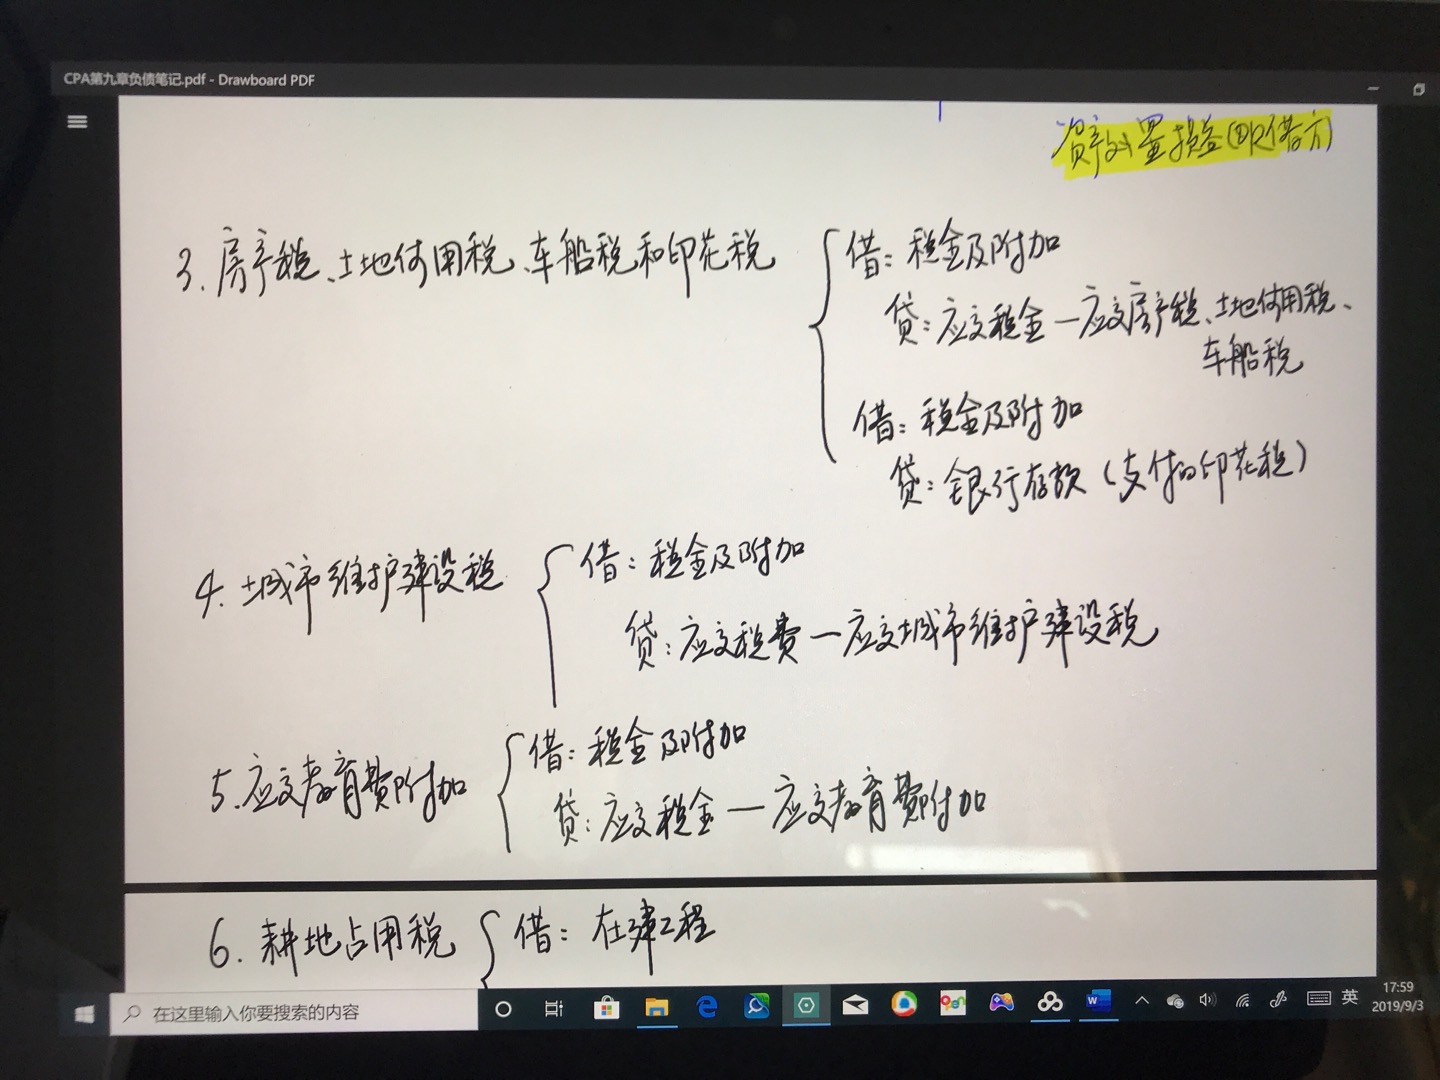 CPA第九章负债笔记.pdf - Drawboard PDF
资产处置损益(或借方)
3. 房产税、土地使用税、车船税和印花税
借：税金及附加
贷：应交税金—应交房产税、土地使用税、
车船税
借：税金及附加
贷：银行存款（支付的印花税）
4. 城市维护建设税
借：税金及附加
贷：应交税费—应交城市维护建设税
5. 应交教育费附加
借：税金及附加
贷：应交税金—应交教育费附加
6. 耕地占用税
借：在建工程
在这里输入你要搜索的内容
英
17:59
2019/9/3